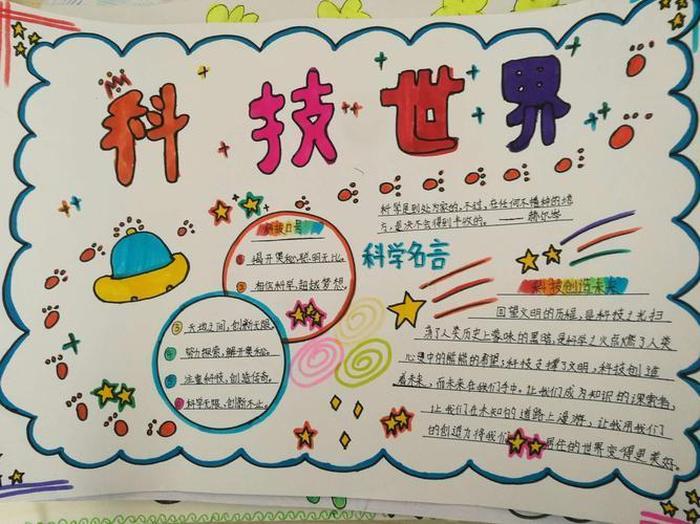 科技世界
科学是到处为家的,不过,在任何不播种的地
方,是决不会得到丰收的。——赫尔岑
科学名言
科技口号
① 揭开奥秘,聪明无比。
② 相信科学,超越梦想。
③ 天地之间,创新无限。
④ 努力探索,解开奥秘。
⑤ 注重科技,创造传奇。
⑥ 科学无限,创新不止。
科技创造未来
回望文明的历程,是科技之光扫
荡了人类历史上蒙昧的黑暗,是科学之火点燃了人类
心里中的熊熊的希望;科技支撑了文明,科技创造
着未来,而未来在我们手中。让我们成为知识的探索者,
让我们在未知的道路上漫游,让我用我们
的创造力将我们居住的世界变得更美好。